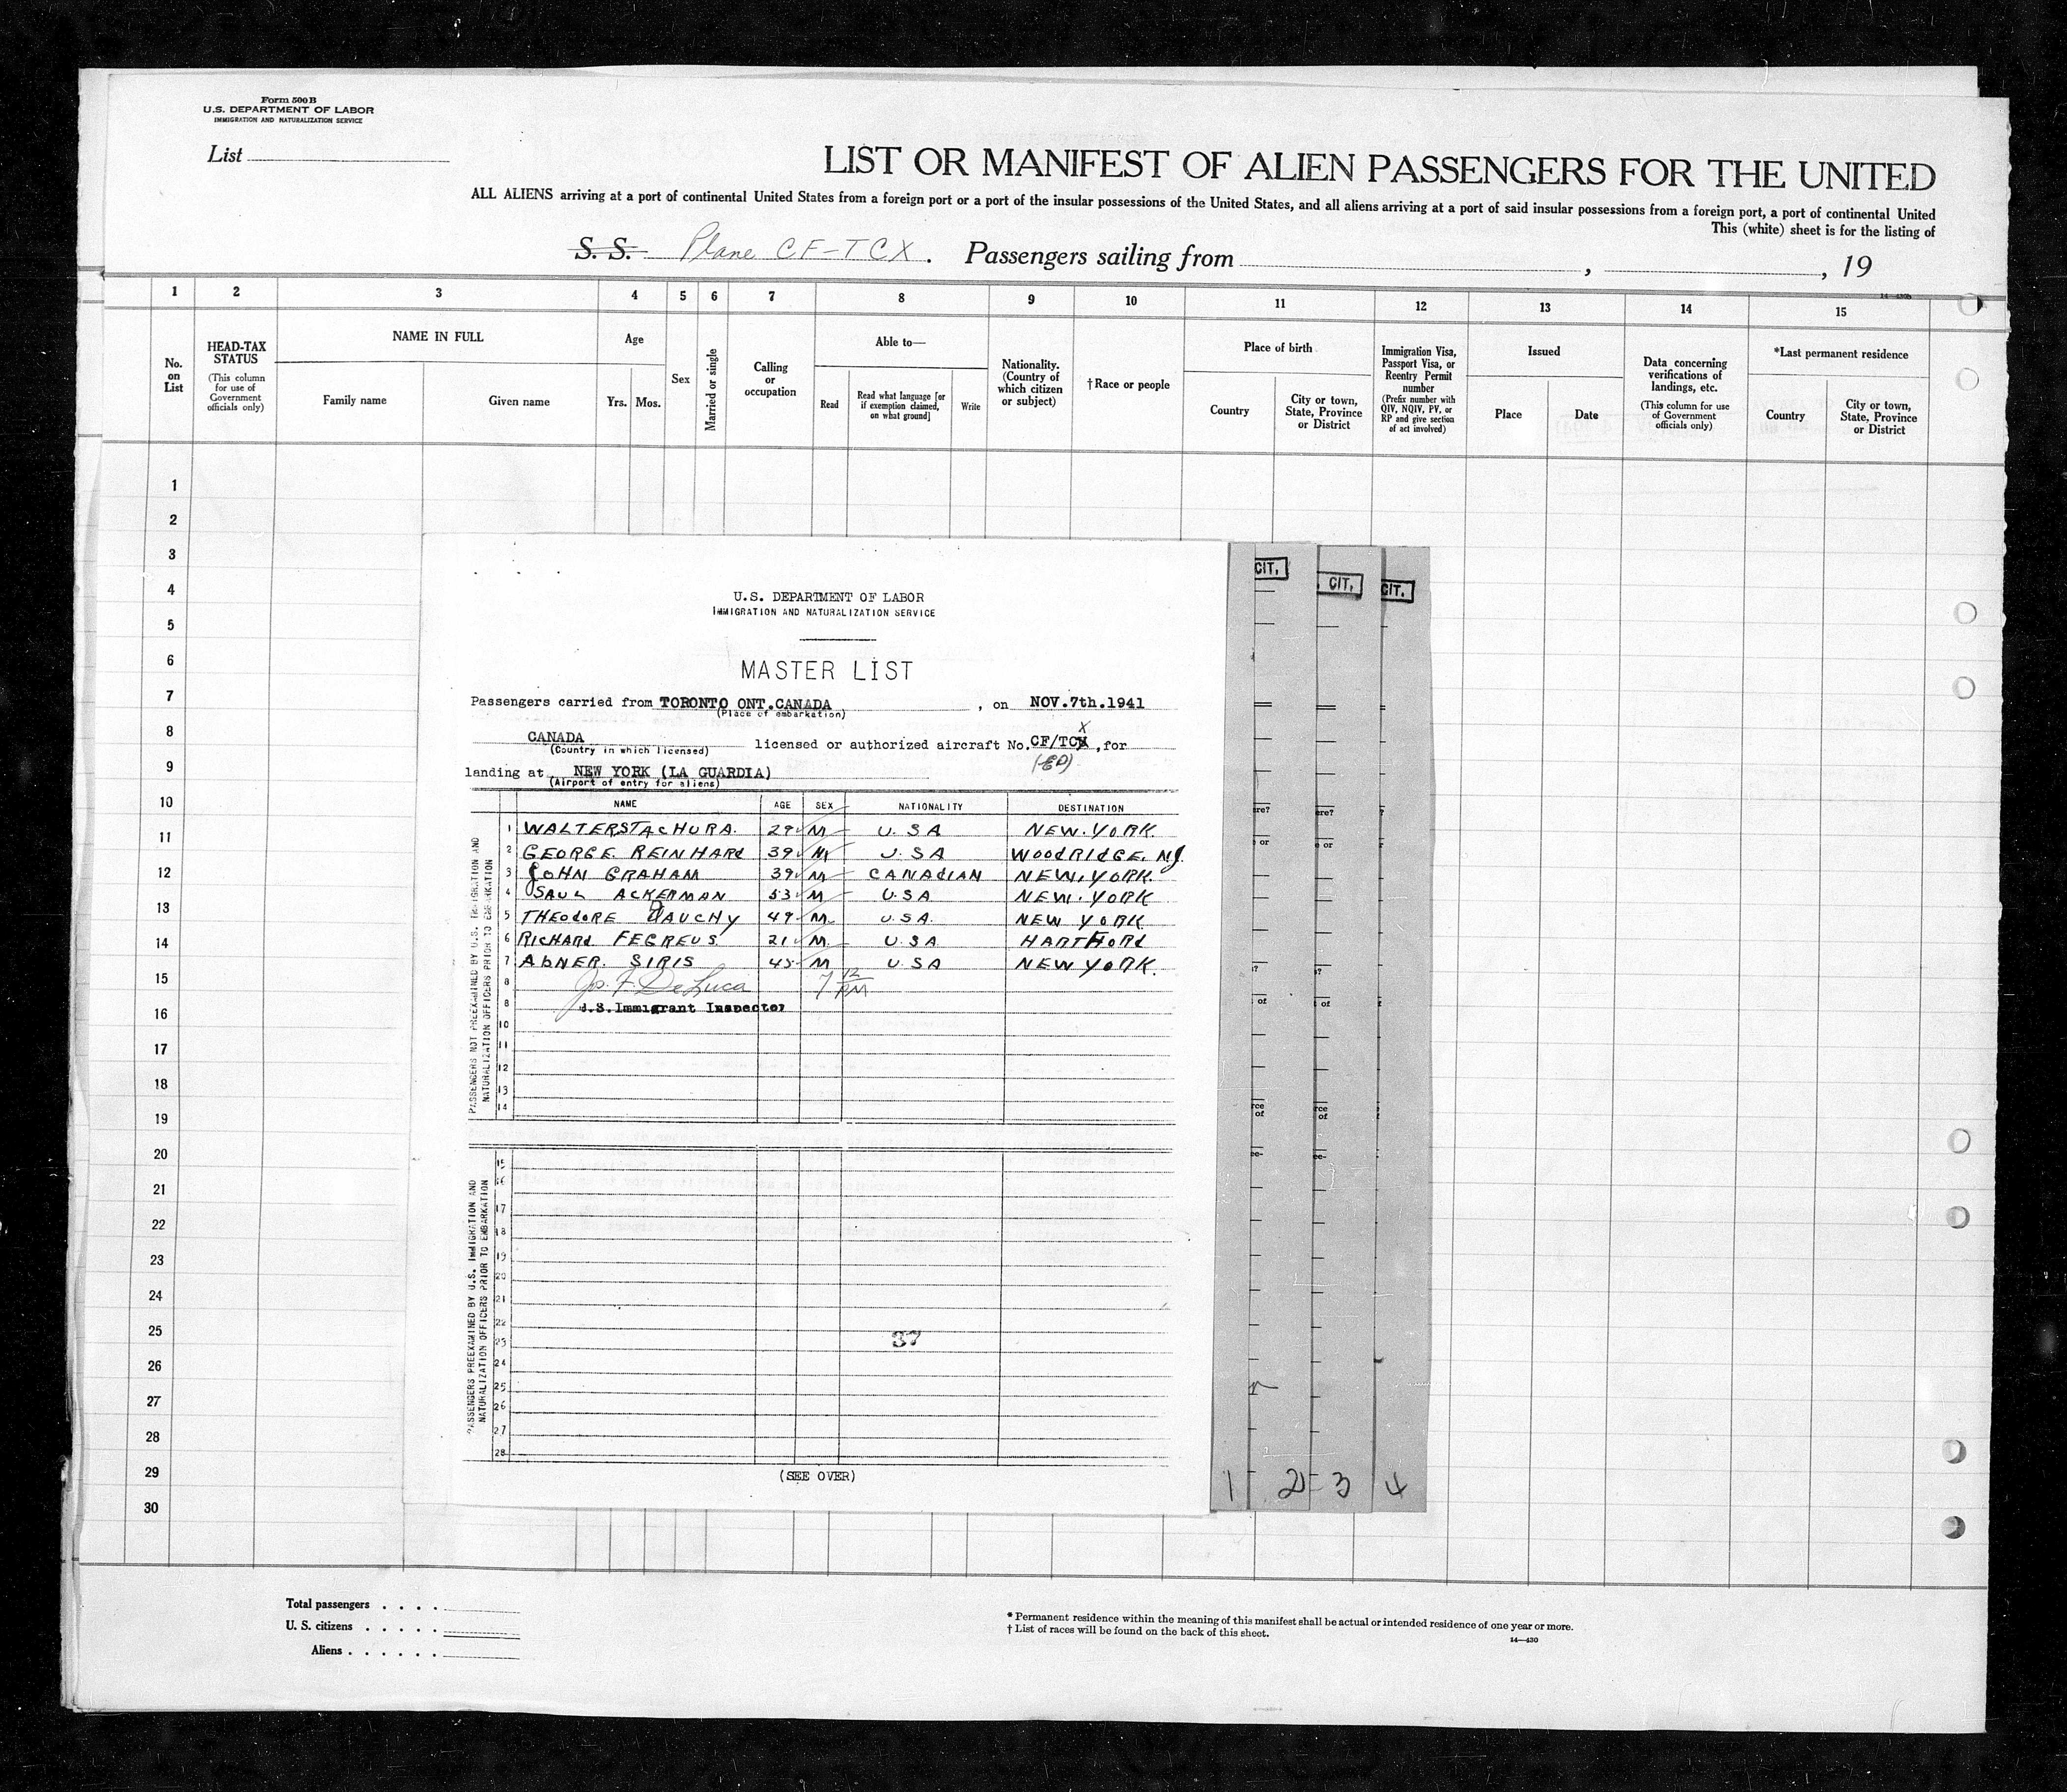 Form 500 B
U.S. DEPARTMENT OF LABOR
IMMIGRATION AND NATURALIZATION SERVICE
List
LIST OR MANIFEST OF ALIEN PASSENGERS FOR THE UNITED
ALL ALIENS arriving at a port of continental United States from a foreign port or a port of the insular possessions of the United States, and all aliens arriving at a port of said insular possessions from a foreign port, a port of continental United
This (white) sheet is for the listing of
S. S. Plane CF-TCX. Passengers sailing from , , 19
14-430b
1 2 3 4 5 6 7 8 9 10 11 12 13 14 15
No. on List
HEAD-TAX STATUS
(This column for use of Government officials only)
NAME IN FULL
Family name Given name
Age
Yrs. Mos.
Sex
Married or single
Calling or occupation
Able to—
Read
Read what language [or if exemption claimed, on what ground]
Write
Nationality. (Country of which citizen or subject)
†Race or people
Place of birth
Country
City or town, State, Province or District
Immigration Visa, Passport Visa, or Reentry Permit number
(Prefix number with QIV, NQIV, PV, or RP and give section of act involved)
Issued
Place Date
Data concerning verifications of landings, etc.
(This column for use of Government officials only)
*Last permanent residence
Country
City or town, State, Province or District
1
2
3
4
5
6
7
8
9
10
11
12
13
14
15
16
17
18
19
20
21
22
23
24
25
26
27
28
29
30
U.S. DEPARTMENT OF LABOR
IMMIGRATION AND NATURALIZATION SERVICE
MASTER LIST
Passengers carried from TORONTO ONT.CANADA , on NOV.7th.1941
(Place of embarkation)
X
CANADA licensed or authorized aircraft No. CF/TCX , for
(Country in which licensed)
landing at NEW YORK (LA GUARDIA)
(Airport of entry for aliens)
NAME AGE SEX NATIONALITY DESTINATION
PASSENGERS NOT PREEXAMINED BY U.S. IMMIGRATION AND NATURALIZATION OFFICERS PRIOR TO EMBARKATION
1 WALTER STACHURA. 29 M U.SA NEW.YORK.
2 GEORGE REINHARd 39 M U.SA WOOdRIdGE. NJ.
3 JOHN GRAHAM 39 M CANAdIAN NEW.YORK.
4 SAUL ACKERMAN 53 M U.SA NEW.YORK
5 THEOdORE DAUCHY 49 M U.S.A. NEW YORK
6 RICHARd FEGREUS 21 M. U.S.A HARTHORd
7 AbNER. SIRIS 45 M U.SA NEW YORK.
8 Jos. F. DeLuca 7 12 PM
8 U.S.Immigrant Inspector
10
11
12
13
14
PASSENGERS PREEXAMINED BY U.S. IMMIGRATION AND NATURALIZATION OFFICERS PRIOR TO EMBARKATION
15
16
17
18
19
20
21
22
23
24
25
26
27
28
37
(SEE OVER)
CIT. CIT. CIT.
ere? ere?
e or e or
of of
rce of rce of
ee- ee-
1 2 3 4
Total passengers . . . .
U. S. citizens . . . . .
Aliens . . . . . .
* Permanent residence within the meaning of this manifest shall be actual or intended residence of one year or more.
† List of races will be found on the back of this sheet.
14—430